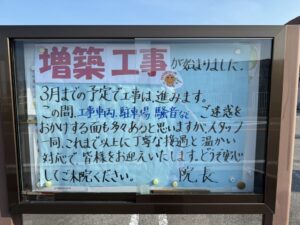 増築工事が始まりました。
3月までの予定で工事は、進みます。
この間、工事車両、駐車場、騒音など ご迷惑を
おかけする面も多々ありと思いますが、スタッフ
一同、これまで以上に丁寧な接遇と温かい
対応で皆様をお迎えいたします。どうぞ安心
してご来院ください。 院長